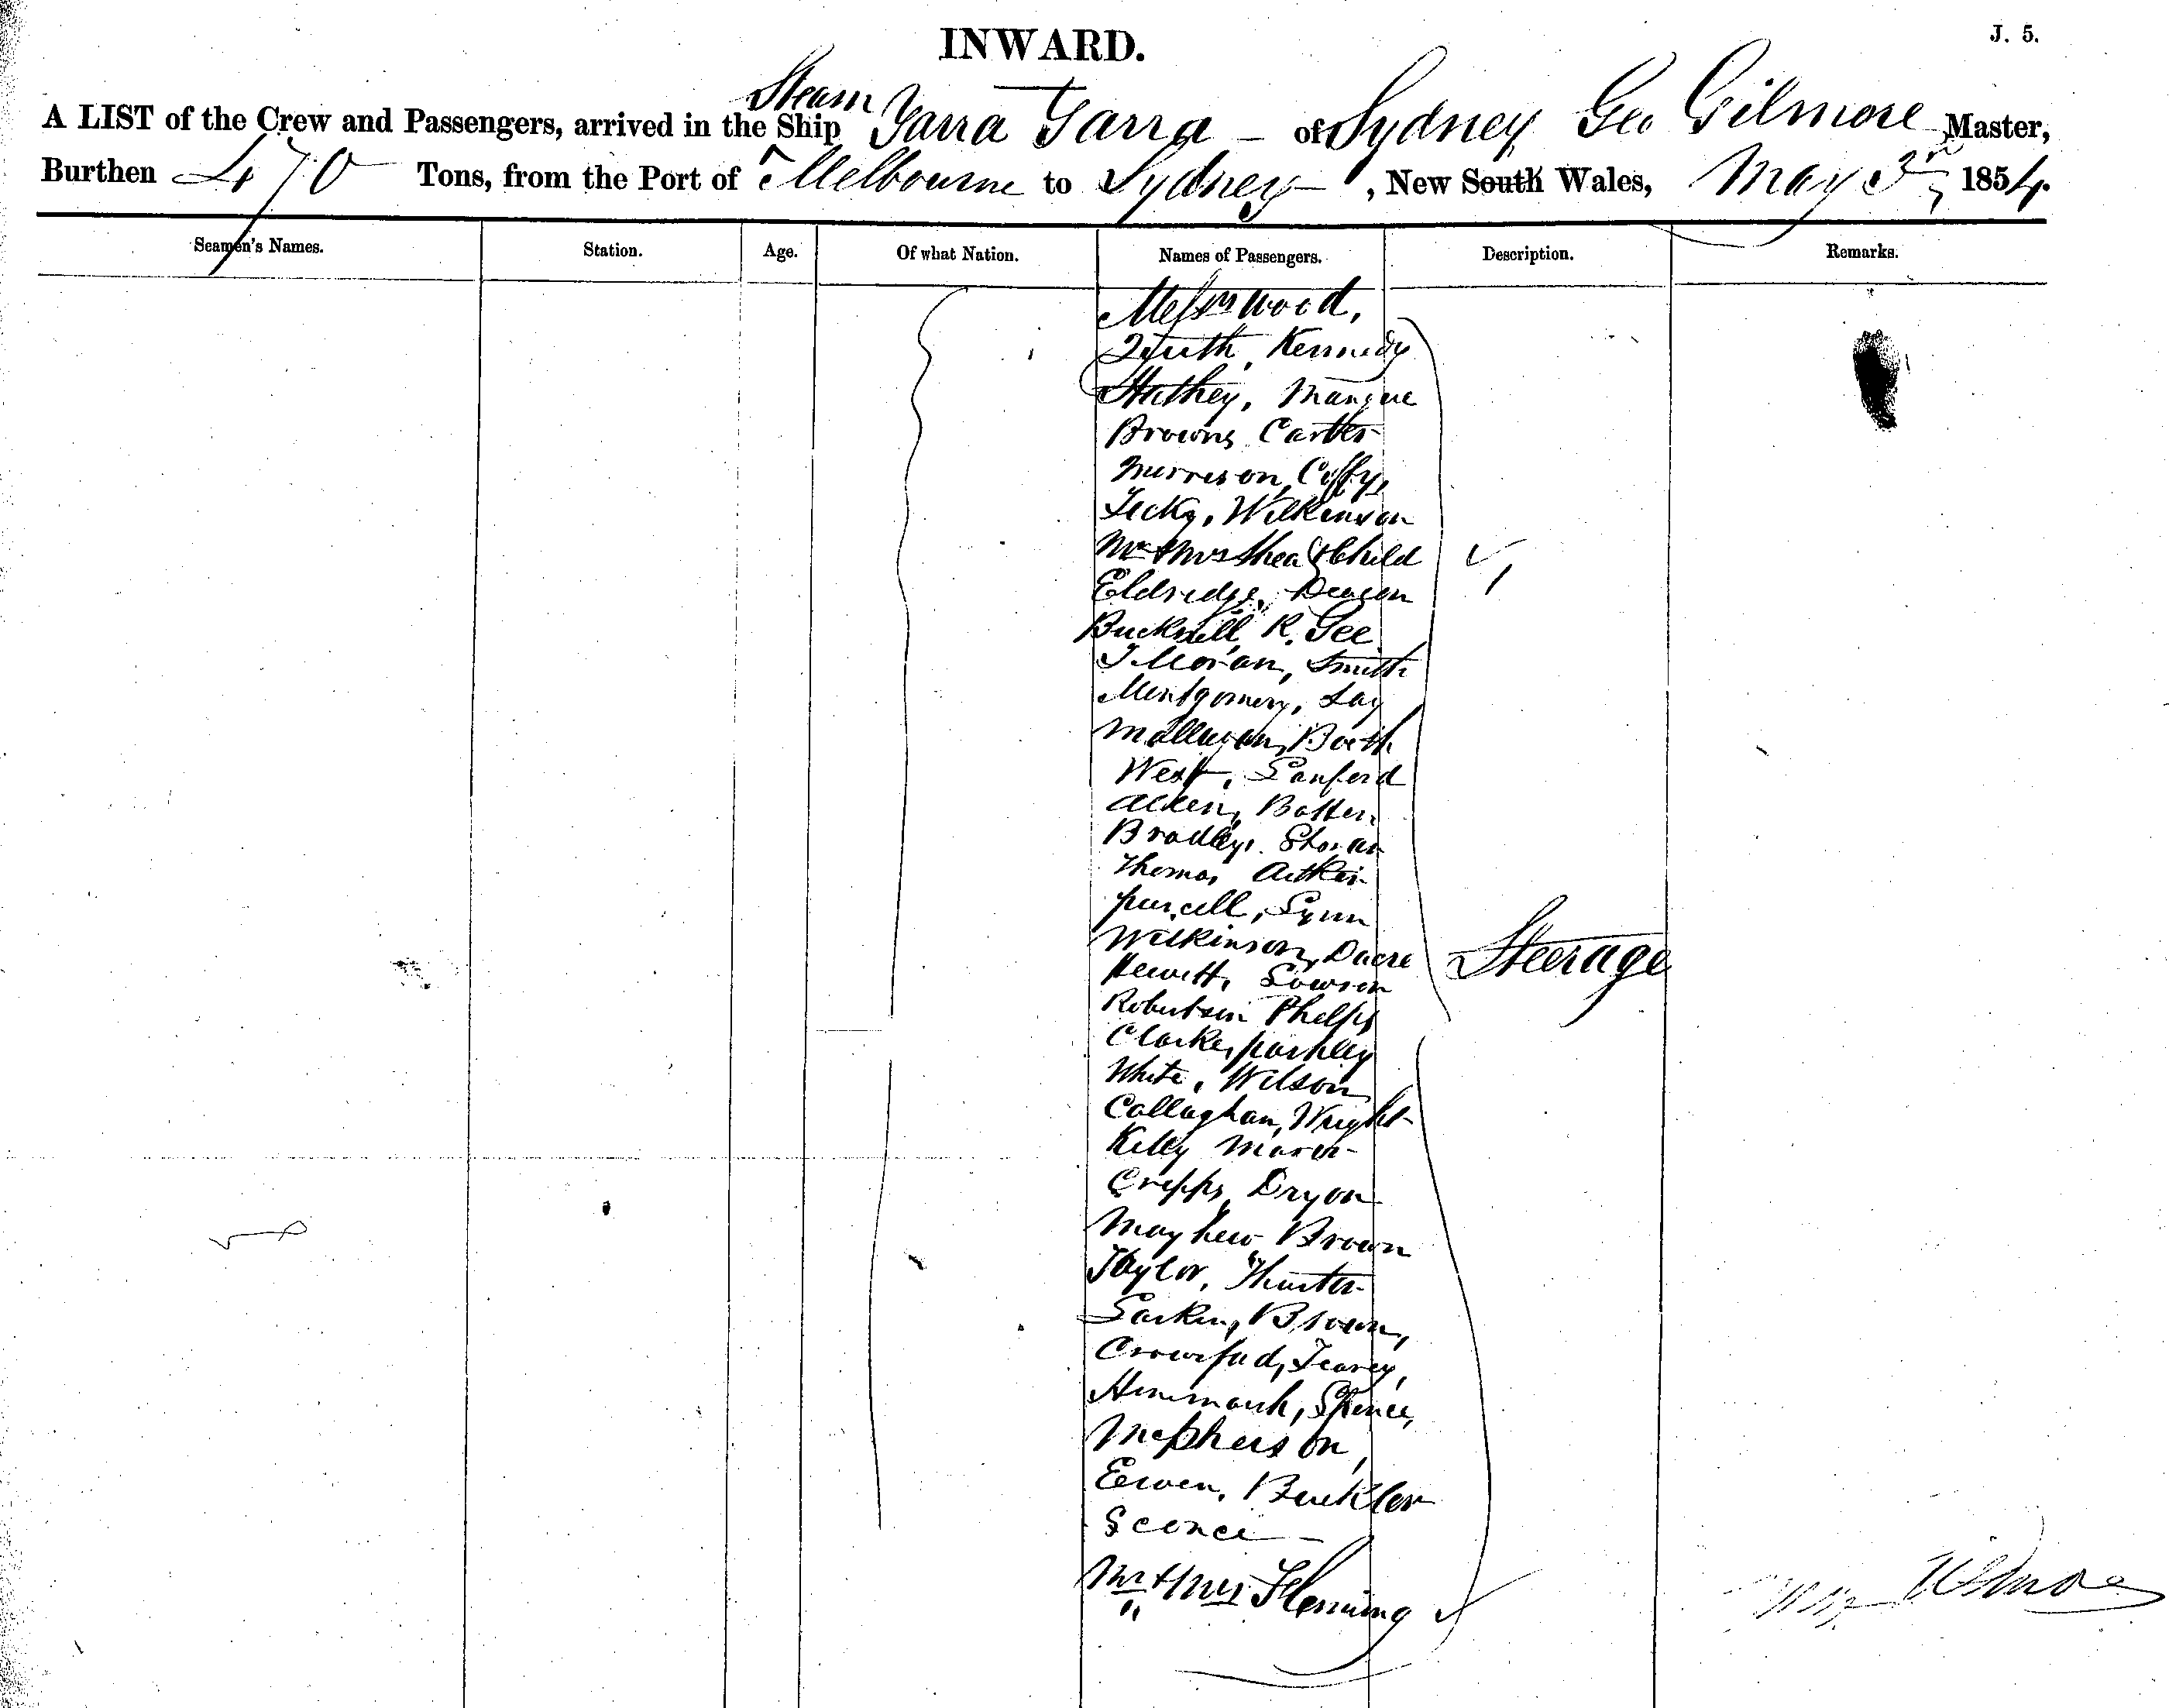 INWARD.
J. 5.
Steam
A LIST of the Crew and Passengers, arrived in the Ship Yarra Yarra – of Sydney Geo Gilmore Master,
Burthen 470 Tons, from the Port of Melbourne to Sydney , New South Wales, May 3rd 1854.
Seamen's Names. Station. Age. Of what Nation. Names of Passengers. Description. Remarks.
Messrs Wood,
Kennedy
Browne, Carter
Morrison, Coffy,
Wilkinson
Mr & Mrs Shea & Child
Eldridge, Deacon
Bucknell, R. Gee
Moran, Smith
Montgomery, Lay
Booth
West, Lanford
Allen, Batten
Bradley,
Thomas Aitken
Purcell, Lynn
Wilkinson, Dacre
Steerage
Hewitt, Lowson
Robertson Phelps
Clarke, Parkley
White, Wilson
Callaghan, Wright
Kelly
Cripps, Dryon
Mayhew Brown
Taylor,
Larkin, Brown,
Crawford,
Spence,
McPherson,
Buckler
Sconce
Mr & Mrs Fleming